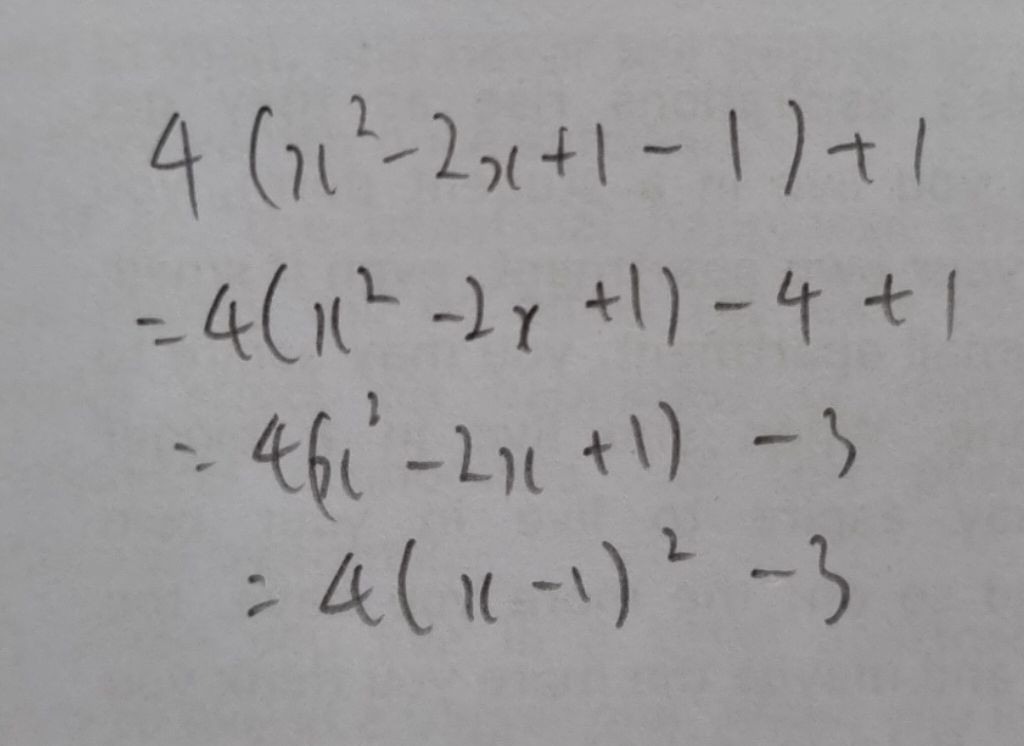 4(x²-2x+1-1)+1
=4(x²-2x+1)-4+1
=4(x²-2x+1)-3
=4(x-1)²-3